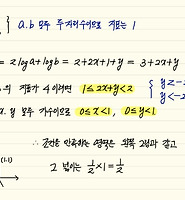 } a.b 모두 두자리수이므로 지표는 1
= 2loga+logb = 2+2x+1+y = 3+2x+y
의 지표가 4 이려면 1≤2x+y<2 { y≥-
y<-2
x. y 모두 가수이므로 0≤x<1, 0≤y<1
∴ 조건을 만족하는 영역은 왼쪽 그림과 같고
(1.1)
그 넓이는 ½×1=½